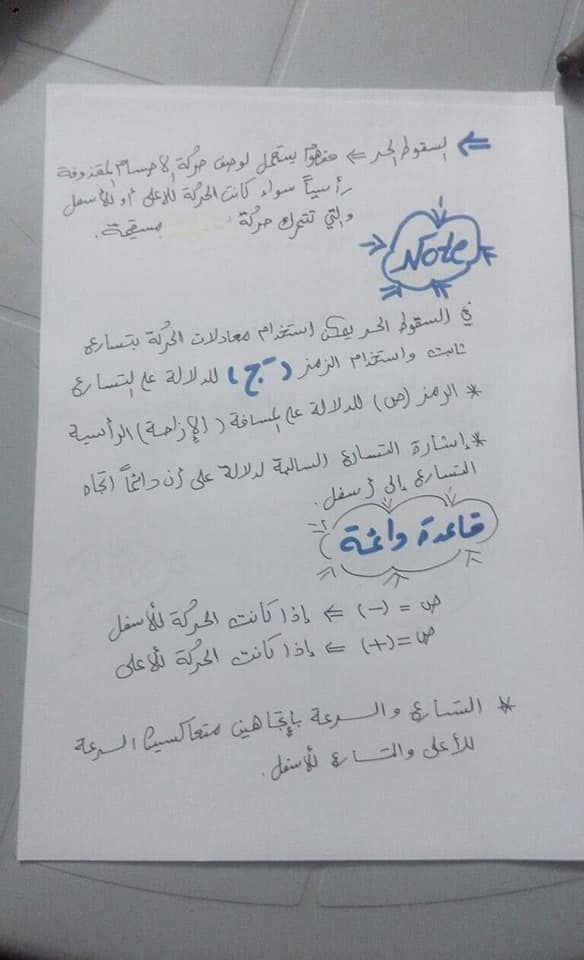 ⇐ السقوط الحر ⇐ مفهوم يستعمل لوصف حركة الاجسام المقذوفة
رأسياً سواء كانت الحركة للاعلى أو للأسفل
والتي تتحرك حركة مستقيمة.
Note
في السقوط الحر يمكن استخدام معادلات الحركة بتسارع
ثابت واستخدام الرمز (-ج) للدلالة على التسارع
* الرمز (ص) للدلالة على المسافة (الإزاحة) الرأسية
* إشارة التسارع السالبة لدلالة على أن دائماً اتجاه
التسارع إلى أسفل.
قاعدة دائمة
ص = (-) ⇐ إذا كانت الحركة للأسفل
ص = (+) ⇐ إذا كانت الحركة للأعلى
* التسارع والسرعة بإتجاهين متعاكسين السرعة
للأعلى والتسارع للأسفل.